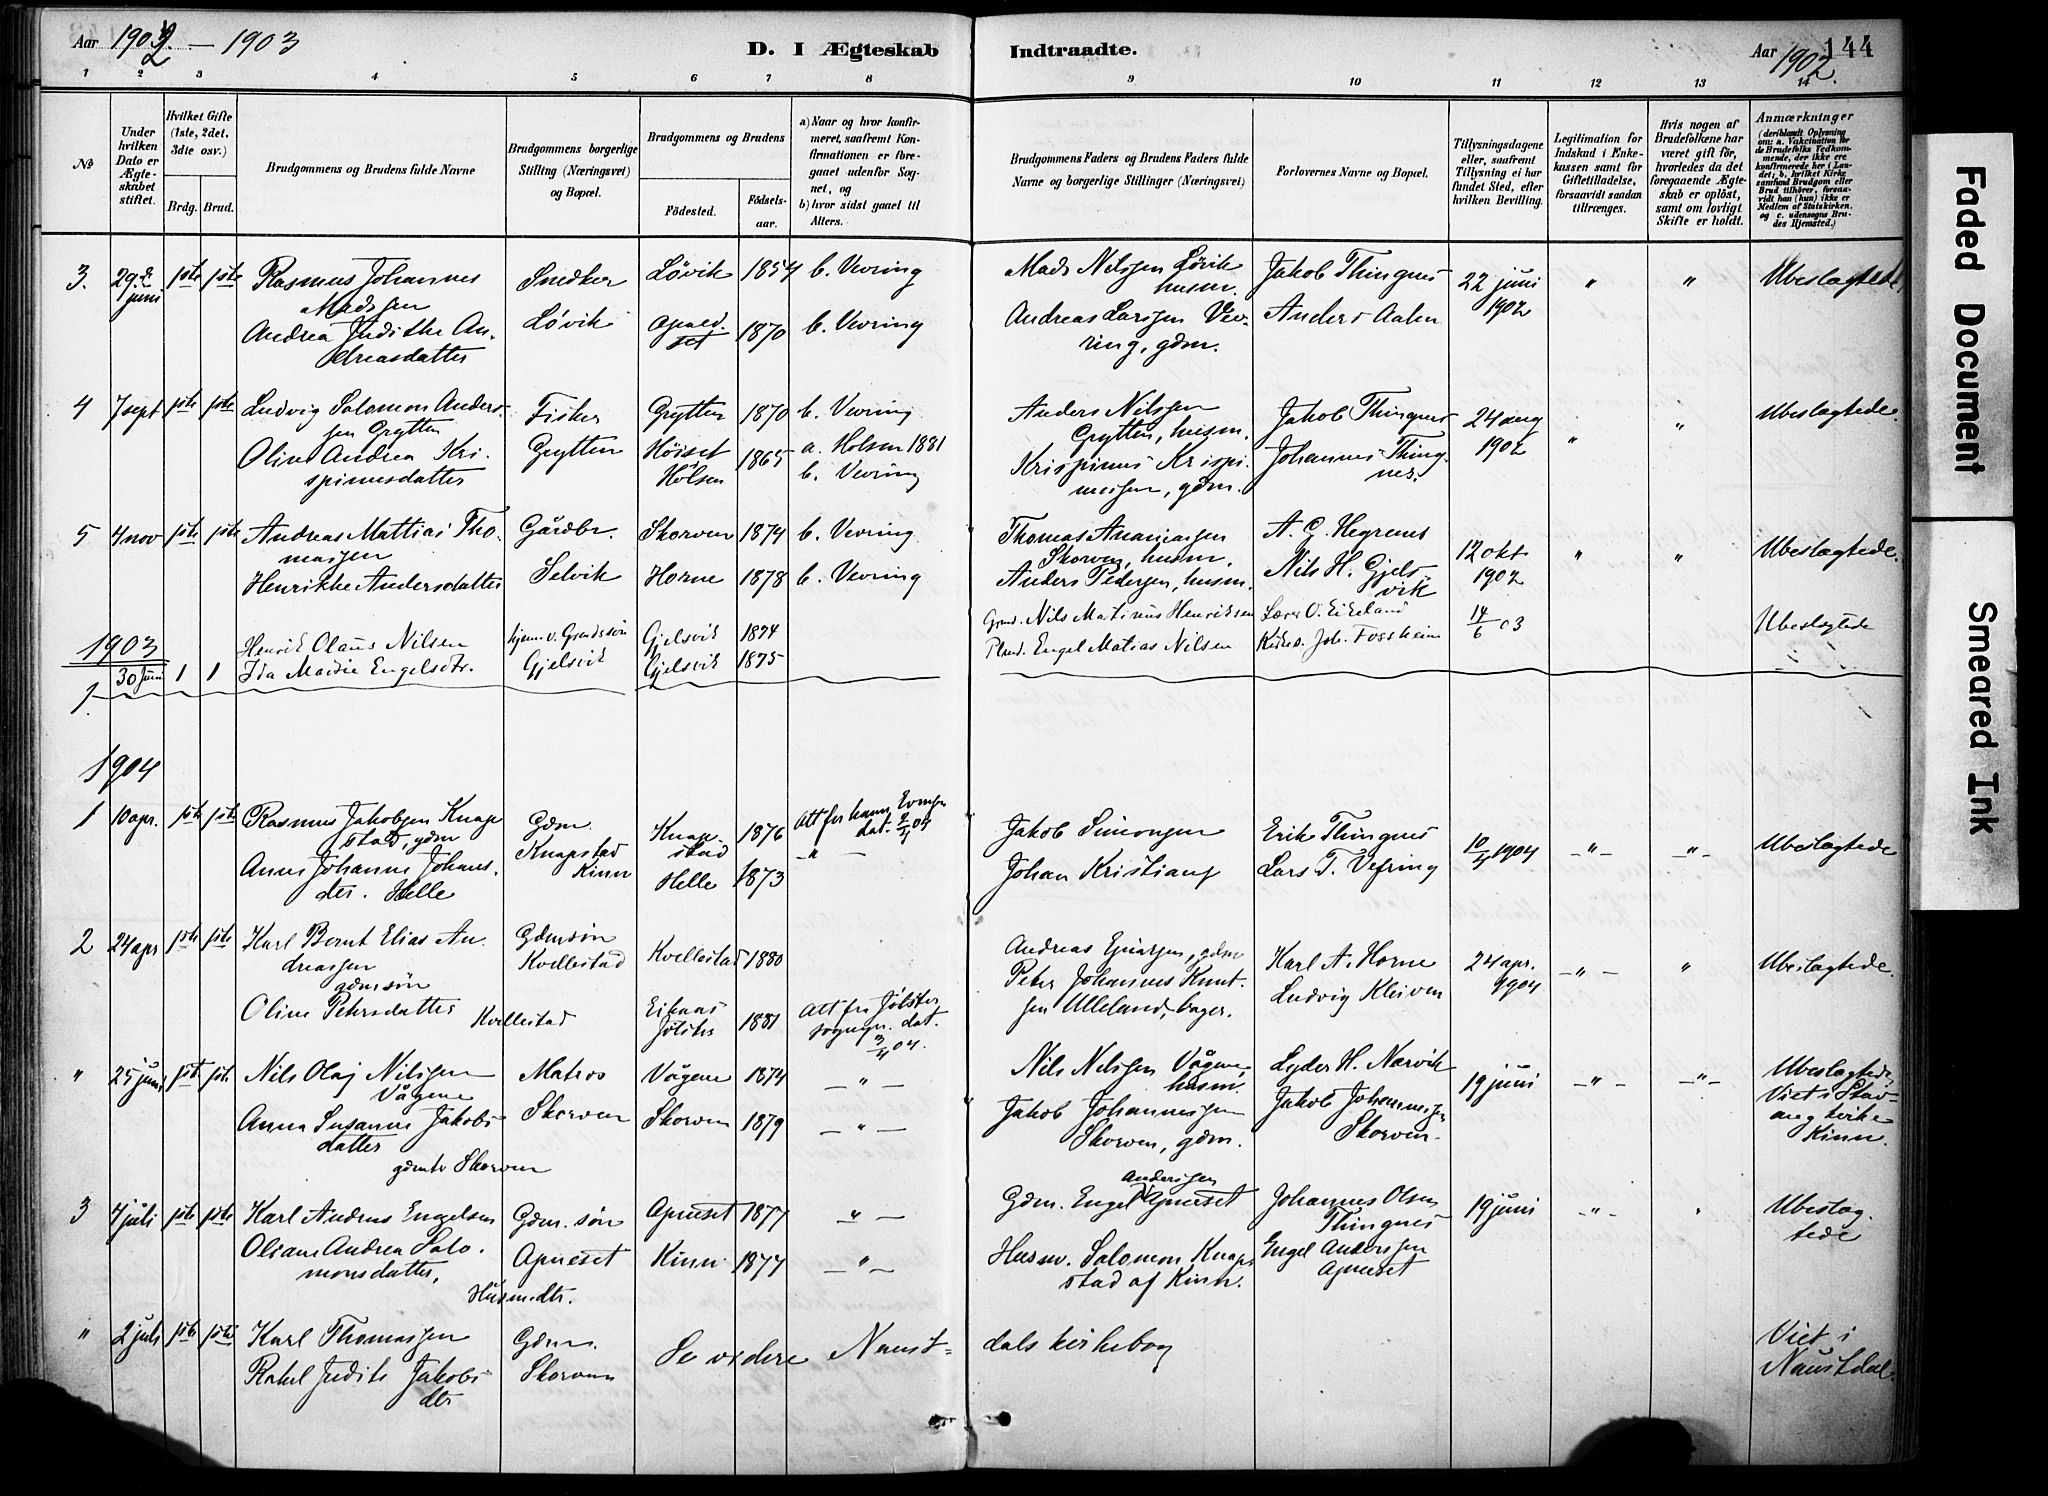 Aar 1902 — 1903
D. I Ægteskab
Indtraadte.
Aar 1902.
144
1 2 3 4 5 6 7 8 9 10 11 12 13 14
№
Under hvilken Dato er Ægteskabet stiftet.
Hvilket Gifte (1ste, 2det, 3die osv.)
Brdg. Brud.
Brudgommens og Brudens fulde Navne
Brudgommens borgerlige Stilling (Næringsvei) og Bopæl.
Brudgommens og Brudens
Fødested.
Fødselsaar.
a) Naar og hvor konfirmeret, saafremt Konfirmationen er foregaaet udenfor Sognet, og
b) hvor sidst gaaet til Alters.
Brudgommens Faders og Brudens Faders fulde Navne og borgerlige Stillinger (Næringsvei)
Forlovernes Navne og Bopæl.
Tillysningsdagene eller, saafremt Tillysning ei har fundet Sted, efter hvilken Bevilling.
Legitimation for Indskud i Enkekassen samt for Giftetilladelse, forsaavidt saadan tiltrænges.
Hvis nogen af Brudefolkene har været gift før, hvorledes da det foregaaende Ægteskab er opløst, samt om lovligt Skifte er holdt.
Anmærkninger
(deriblandt Oplysning om: a. Vakcination for de Brudefolks Vedkommende, der ikke ere konfirmerede her i Landet; b. hvilket Kirkesamfund Brudgom eller Brud tilhører, forsaavidt han (hun) ikke er Medlem af Statskirken, og c. udensogns Brudes Hjemsted.)
3. 29de juni 1ste 1ste Rasmus Johannes Madssen Snedker Løvik Løvik 1854 b. Vevring Mads Nilssen Løvik husm. Jakob Thingnes 22 juni 1902 " " Ubeslægtede
Andrea Judithe Andreasdatter 1870 b. Vevring Andreas Larssen Vevring, gdm. Anders Aalen
4 7 sept 1ste 1ste Ludvig Salomon Anderssen Grytten Fisker Grytten Grytten 1870 b. Vevring Anders Nilssen Grytten, husm. Jakob Thingnes 24 aug 1902 " " Ubeslægtede.
Oline Andrea Krispinusdatter Høiset Holsen 1865 a. Holsen 1881 b. Vevring Krispinus Krispinussen, gdm. Johannes Thingnes.
5 4 nov 1ste 1ste Andreas Mattias Thomassen Gårdbr. Selvik Skorven 1874 b. Vevring Thomas Ananiassen Skorven, husm. A. G. Hegrenes 12 okt 1902 " " Ubeslægtede.
Henrikke Andersdatter Horne 1878 b. Vevring Anders Pedersen, husm. Nils H. Gjelsvik
1903
1 30 Juni 1 1 Henrik Olaus Nilsen Gjelsvik Gjelsvik 1874 Nils Matinus Henriksen Lærer O. Eikeland 14/6 03 Ubeslægtede
Ida Marie Engelsdtr. Gjelsvik 1875 Engel Matias Nilsen Joh. Fossheim
1904
1 10 apr. 1ste 1ste Rasmus Jakobsen Knapstad, gdm Gdm. Knapstad Kinn Knapstad 1876 Att for ham dat. 04 Jakob Simonsen Erik Thingnes 10/4 1904 -"- -"- Ubeslægtede
Anne Johanne Johansdtr. Helle Helle 1873 -"- Johan Kristians Lars T. Vefring
2 24 apr 1ste 1ste Karl Bernt Elias Andreassen gdmsøn Gdmsøn Kvellestad Kvellestad 1880 Andreas Einarsen, gdm Karl A. Horne 24 apr. 1904 -"- " Ubeslægtede.
Oline Petersdatter Kvellestad Eikaas Jølster 1881 Att fra Jølster sognepr. dat. 3/4 04. Peter Johannes Knutsen Ulleland, bager. Ludvig Kleiven
" 25 juni 1ste 1ste Nils Olaj Nilssen Vågene Matros Skorven Vågene 1874 -"- Nils Nilssen Vågene, husm. Lyder H. Nærvik 19 juni -"- -"- Ubeslægtede, Viet i Stavang kirke Kinn.
Anna Susanne Jakobsdatter gdmdtr Skorven Skorven 1879 -"- Jakob Johannessen Skorven, gdm. Jakob Johannessen Skorven.
3 4 juli 1ste 1ste Karl Andreas Engelsen Gdm. søn Apneset Apneset 1877 -"- Gdm. Engel Anderssen Apneset Johannes Olsen Thingnes 19 juni -"- " Ubeslægtede
Oliane Andrea Salomonsdatter, Husmdtr. Kinn 1877 -"- Husm. Salomon Knapstad af Kinn. Engel Anderssen Apneset
" 2 juli 1ste 1ste Karl Thomassen Gdm. Skorven Se videre Naustdals kirkebog Viet i Naustdal.
Rakel Judite Jakobsdtr
Faded Document
Smeared Ink